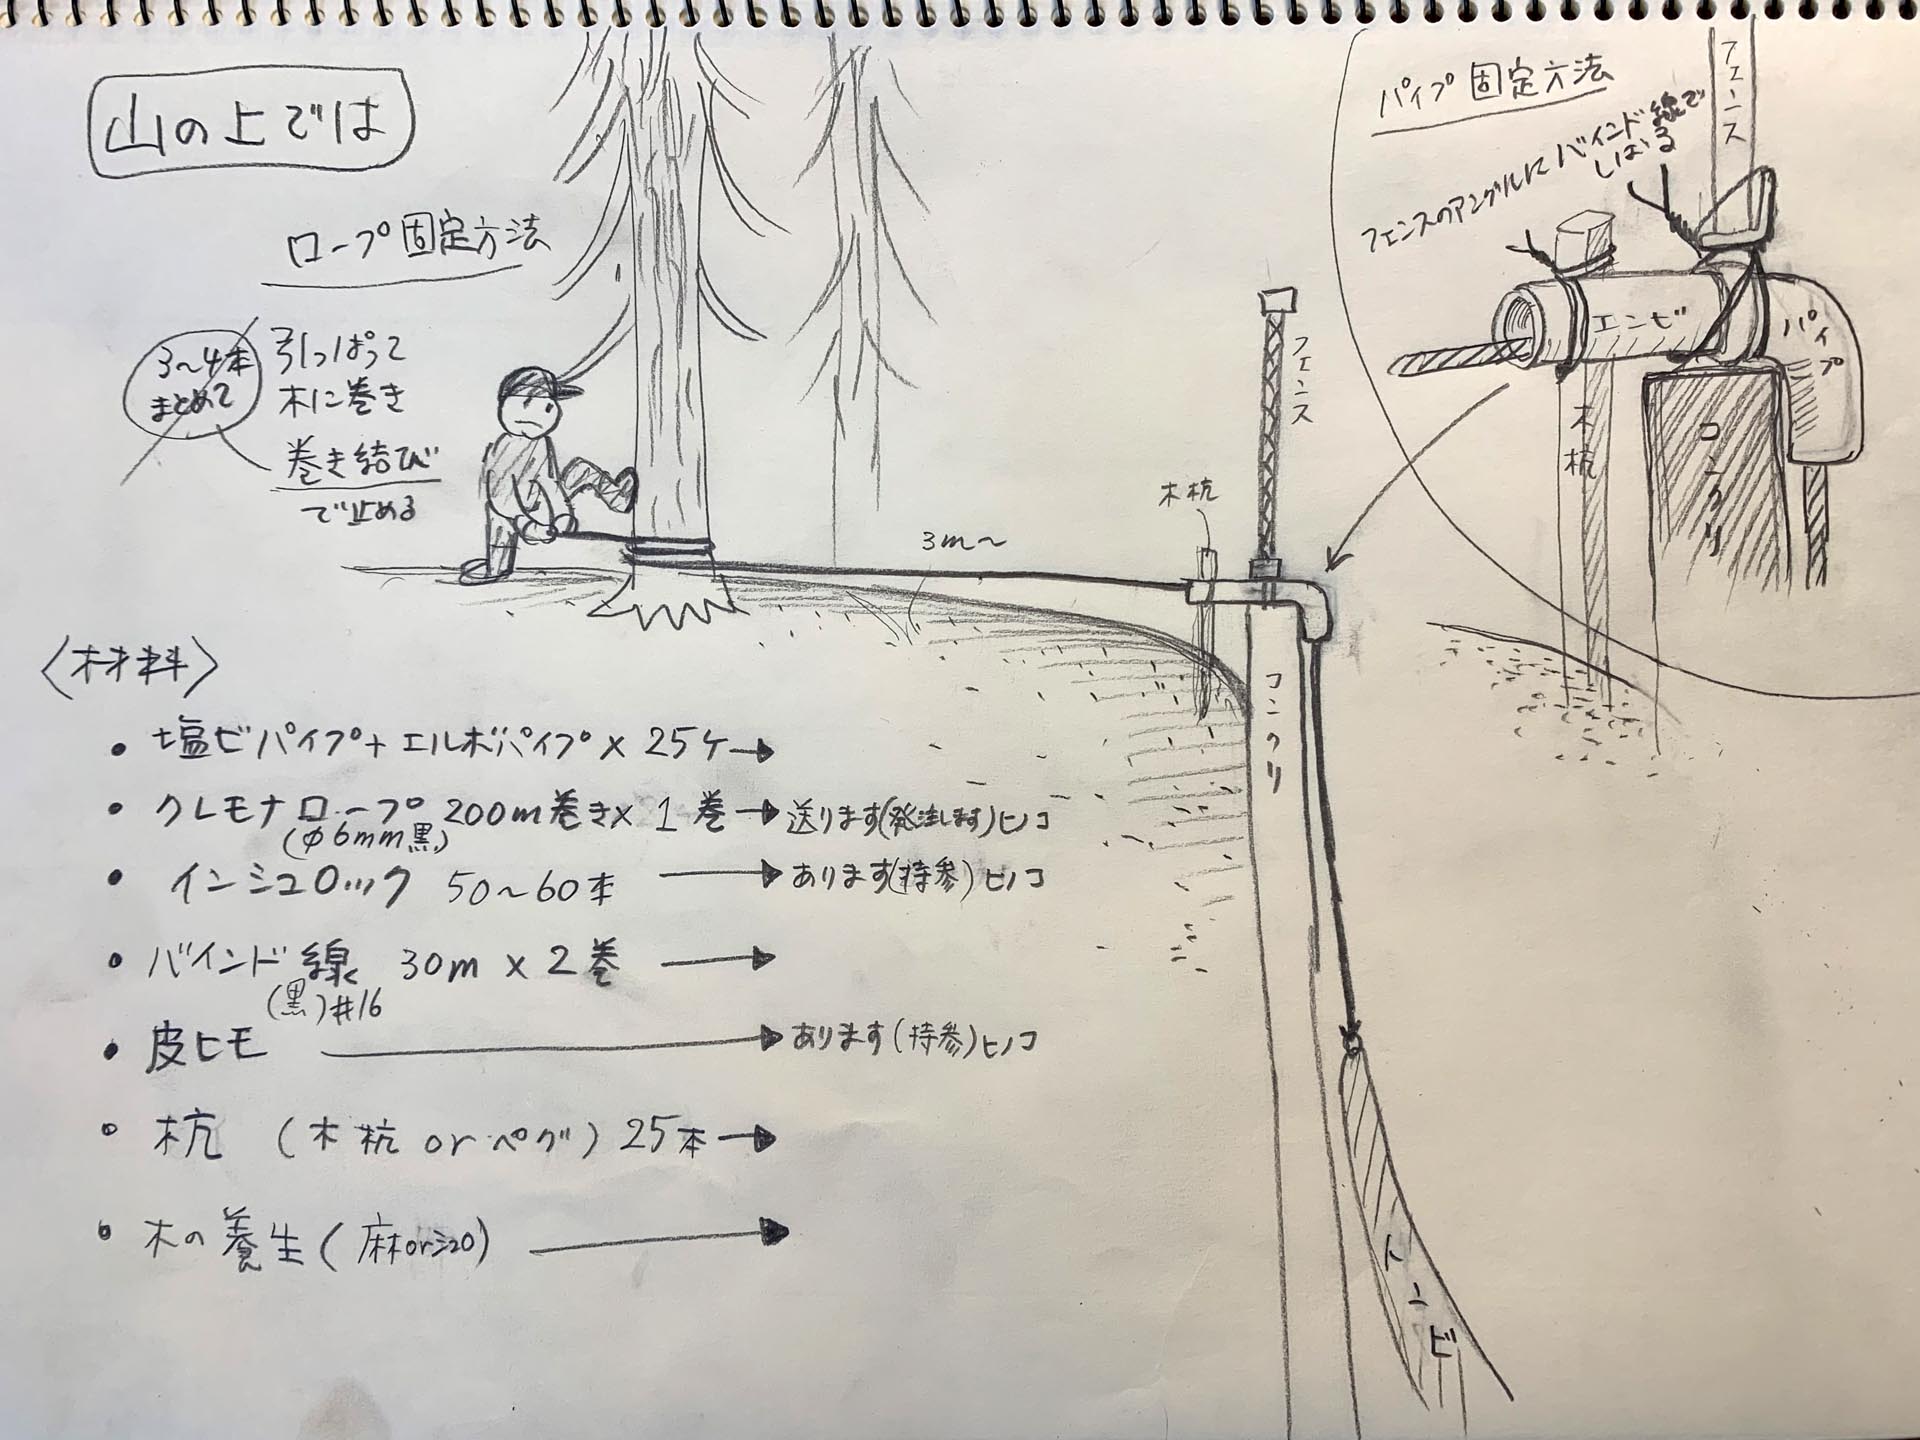 山の上では
ロープ固定方法
3〜4本
まとめて
引っぱって
木に巻き
巻き結び
で止める
3m〜
木杭
フェンス
コンクリ
トンビ
パイプ固定方法
フェンスのアングルにバインド線で
しばる
フェンス
エンビ
パイプ
木杭
コンクリ
〈材料〉
• 塩ビパイプ+エルボパイプ×25ケ→
• クレモナロープ 200m巻き×1巻→送ります(発注します)ヒノコ
(φ6mm黒)
• インシュロック 50〜60本→あります(持参)ヒノコ
• バインド線 30m×2巻→
(黒)#16
• 皮ヒモ→あります(持参)ヒノコ
• 杭 (木杭orペグ) 25本→
• 木の養生(麻orシュロ)→